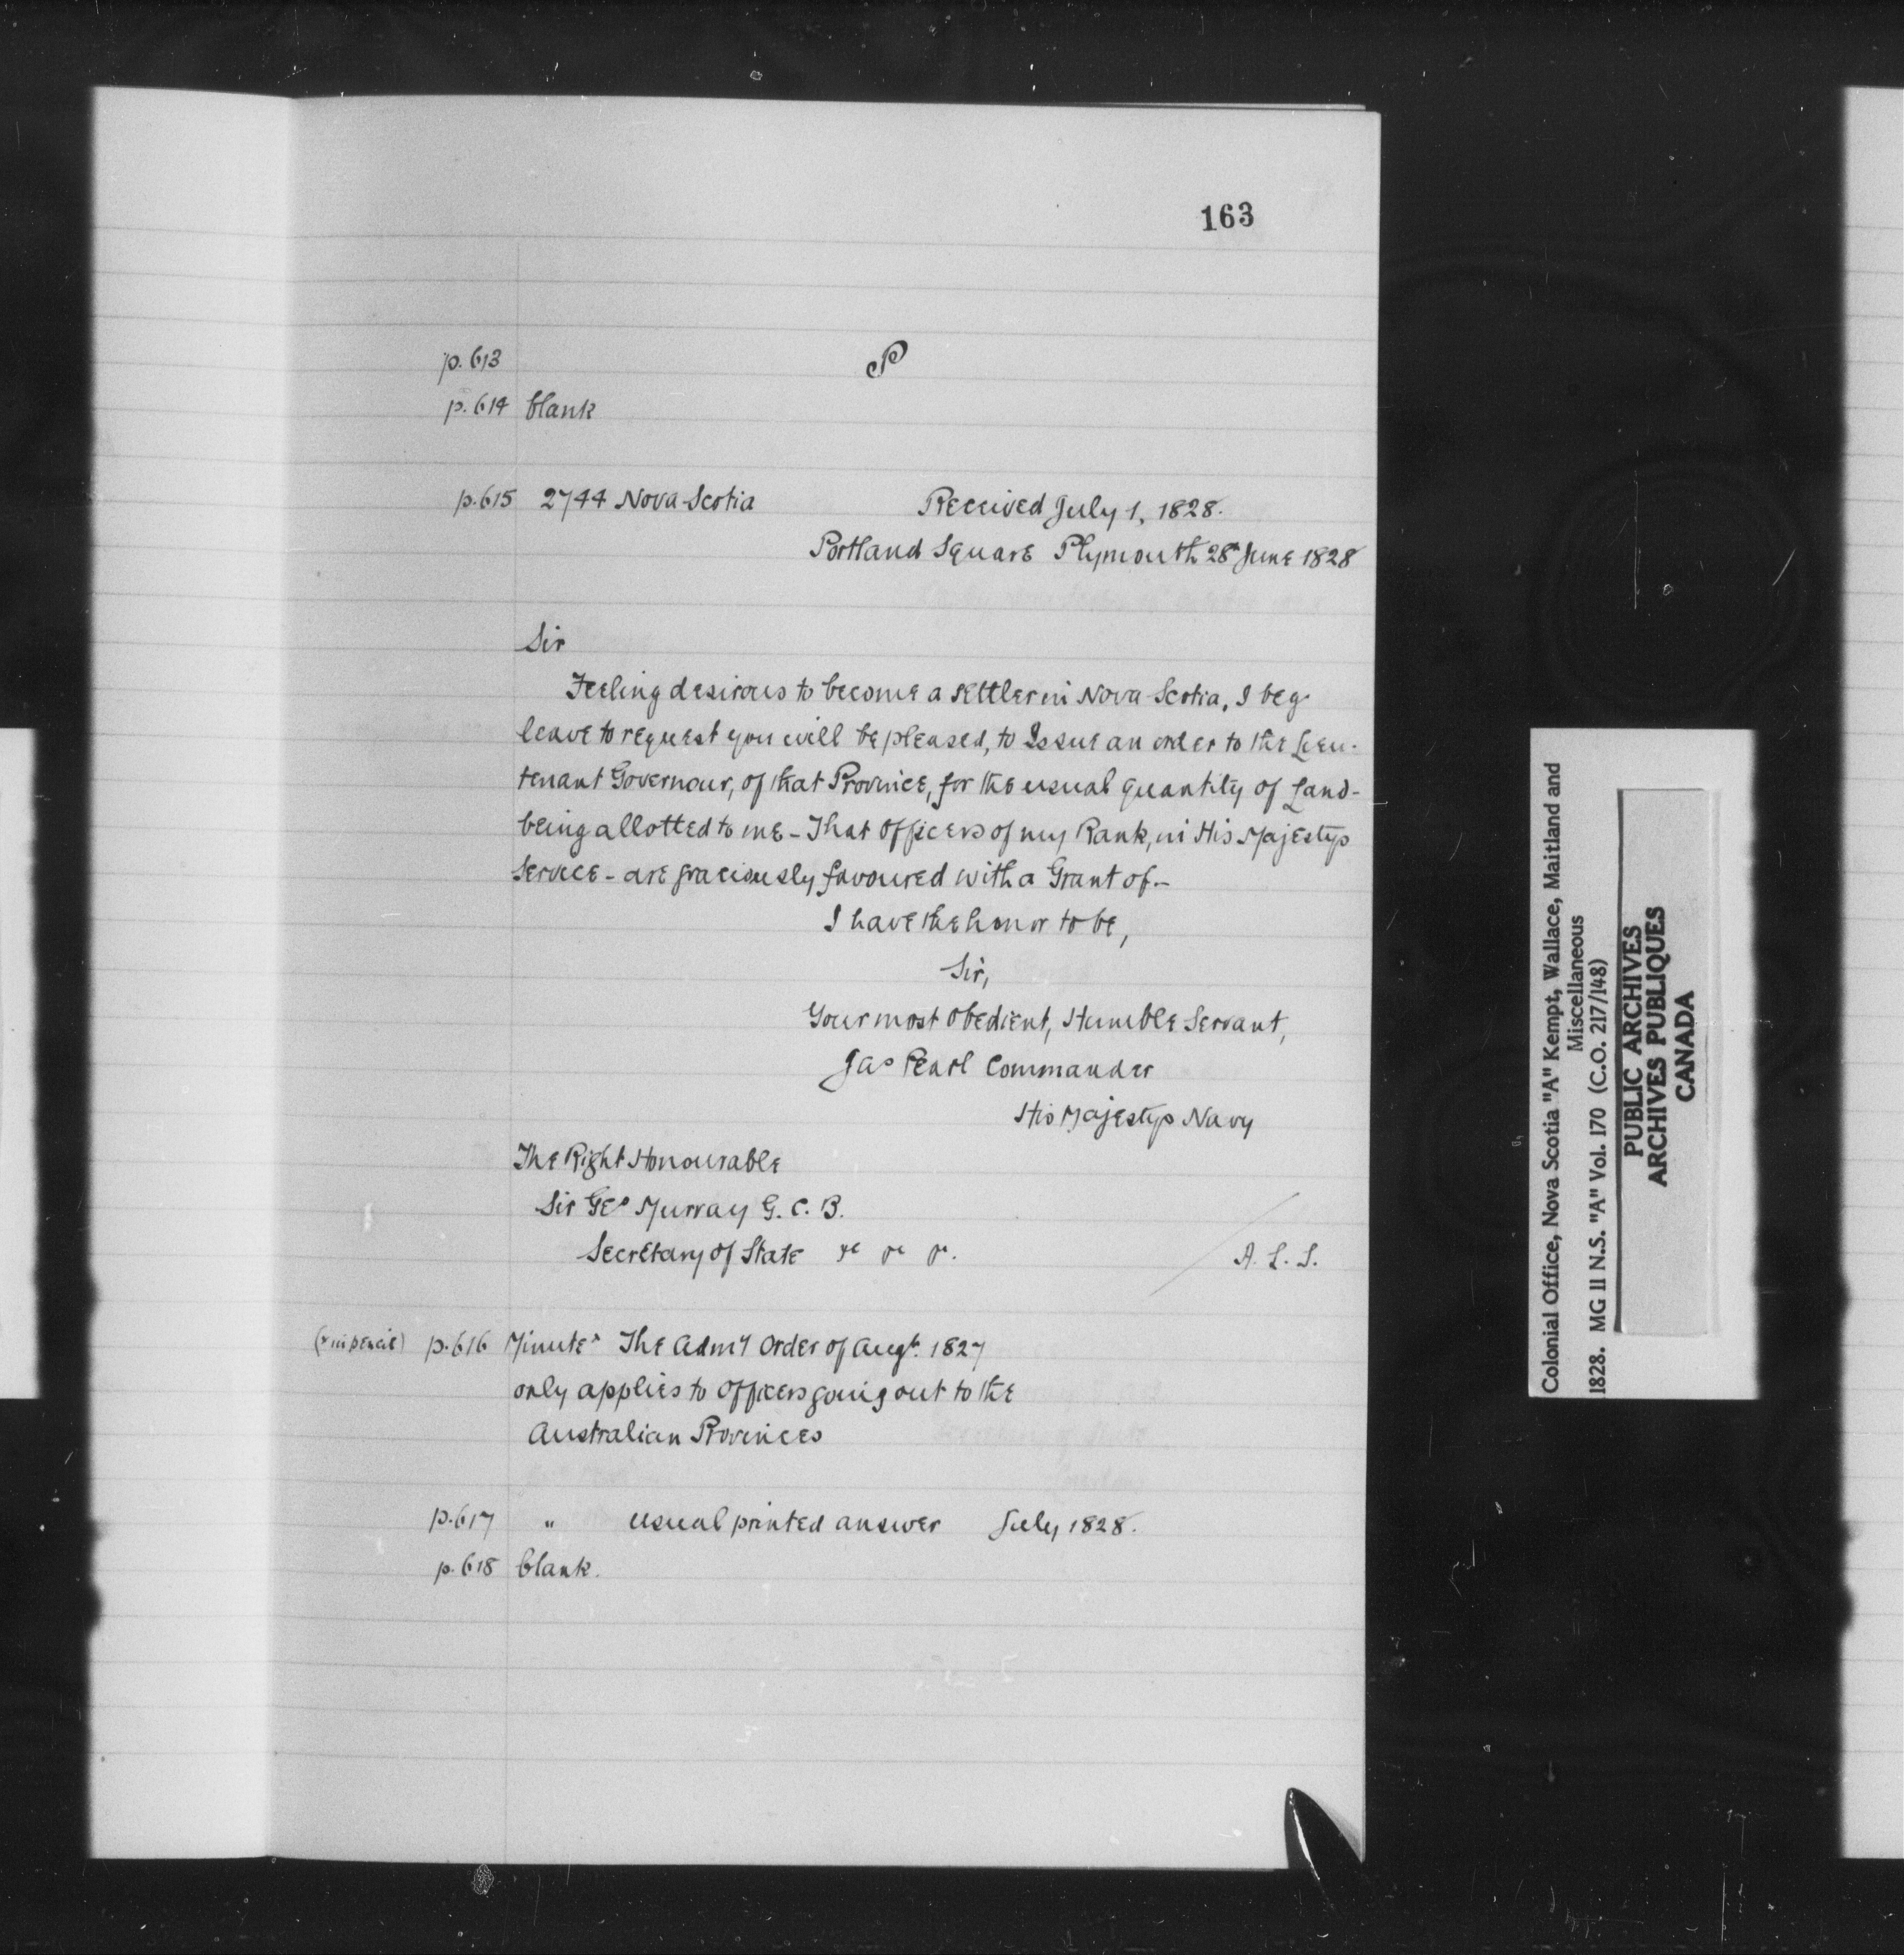 163
p. 613 P
p. 614 blank
p. 615 2744 Nova Scotia Received July 1, 1828.
Portland Square Plymouth 28th June 1828
Sir
Feeling desirous to become a settler in Nova Scotia, I beg
leave to request you will be pleased, to Issue an order to the Lieu-
tenant Governour, of that Province, for the usual quantity of Land -
being allotted to me - That Officers of my Rank, in His Majestys
Service - are graciously favoured with a Grant of -
I have the honor to be,
Sir,
Your most Obedient, Humble Servant,
Jas Pearl Commander
His Majestys Navy
The Right Honourable
Sir Geo Murray G. C. B.
Secretary of State &c &c &c.
A. L. S.
(x in pencil) p. 616 Minute x The Admty Order of Augt. 1827
only applies to Officers going out to the
Australian Provinces
p. 617 " usual printed answer July 1828.
p. 618 blank.
Colonial Office, Nova Scotia "A" Kempt, Wallace, Maitland and
Miscellaneous
1828. MG 11 N.S. "A" Vol. 170 (C.O. 217/148)
PUBLIC ARCHIVES
ARCHIVES PUBLIQUES
CANADA